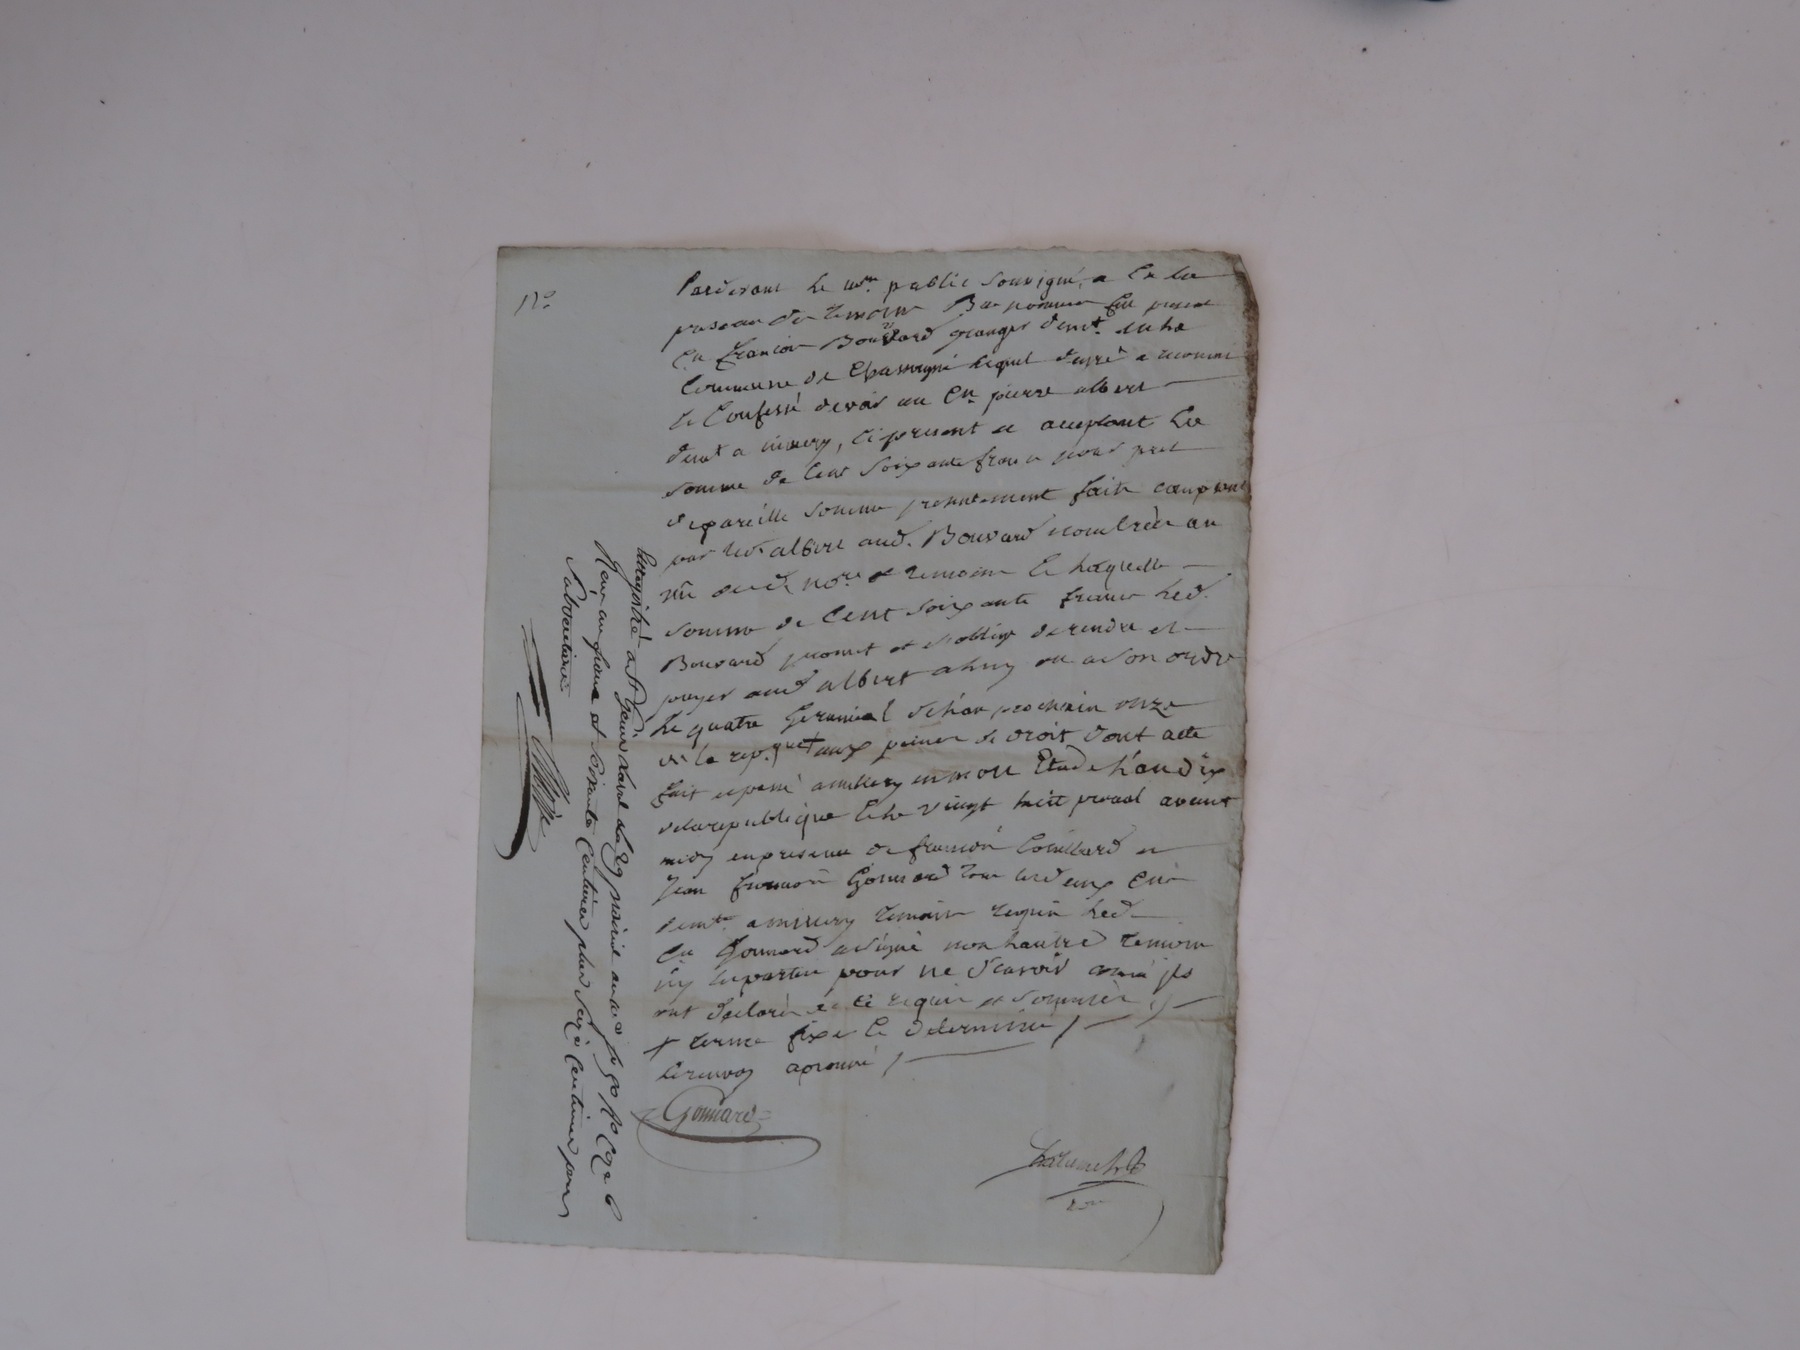 Pardevant le no.re public soussigné, & en la
presence des temoins Bas nommés fut present
Cn francois Bouvard granger demt. en la
Commune de Chassigni lequel de gré a reconnu
& Confessé devoir au Cn. pierre albert
demt a missery, ci present et acceptant La
somme de Cent Soixante francs pour pret
de pareille somme presentement faite comptant
par led. albert aud. Bouvard nombrée au
vû dud. no.re & temoins & Laquelle
somme de Cent soixante francs led.
Bouvard promet et s'oblige de rendre et
payer aud albert a luy ou a son ordre
Le quatre Germinal de l'an prochain onze
de la rep.que + aux peines de droit dont acte
fait et passé a missery en mon Etude L'an dix
de la republique & le vingt huit prerial avant
midy en presence de francois Couillard et
Jean francois Gonnard tous les deux Cns
demts. a missery temoins requis led.
Cn Gonnard a signé non l'autre temoin
ny les parties pour ne Scavoir comme ils
ont déclaré de ce requis et sommés //
+ terme fixe & determiné /
Le renvoy aprouvé /
Gonnard
no.re
N°
Enregistré a St Genis Laval le 29 prairial an dix fo 90 Ro Cse 6
Reçu un franc et soixante Centimes plus Seize Centimes pour
Subvention